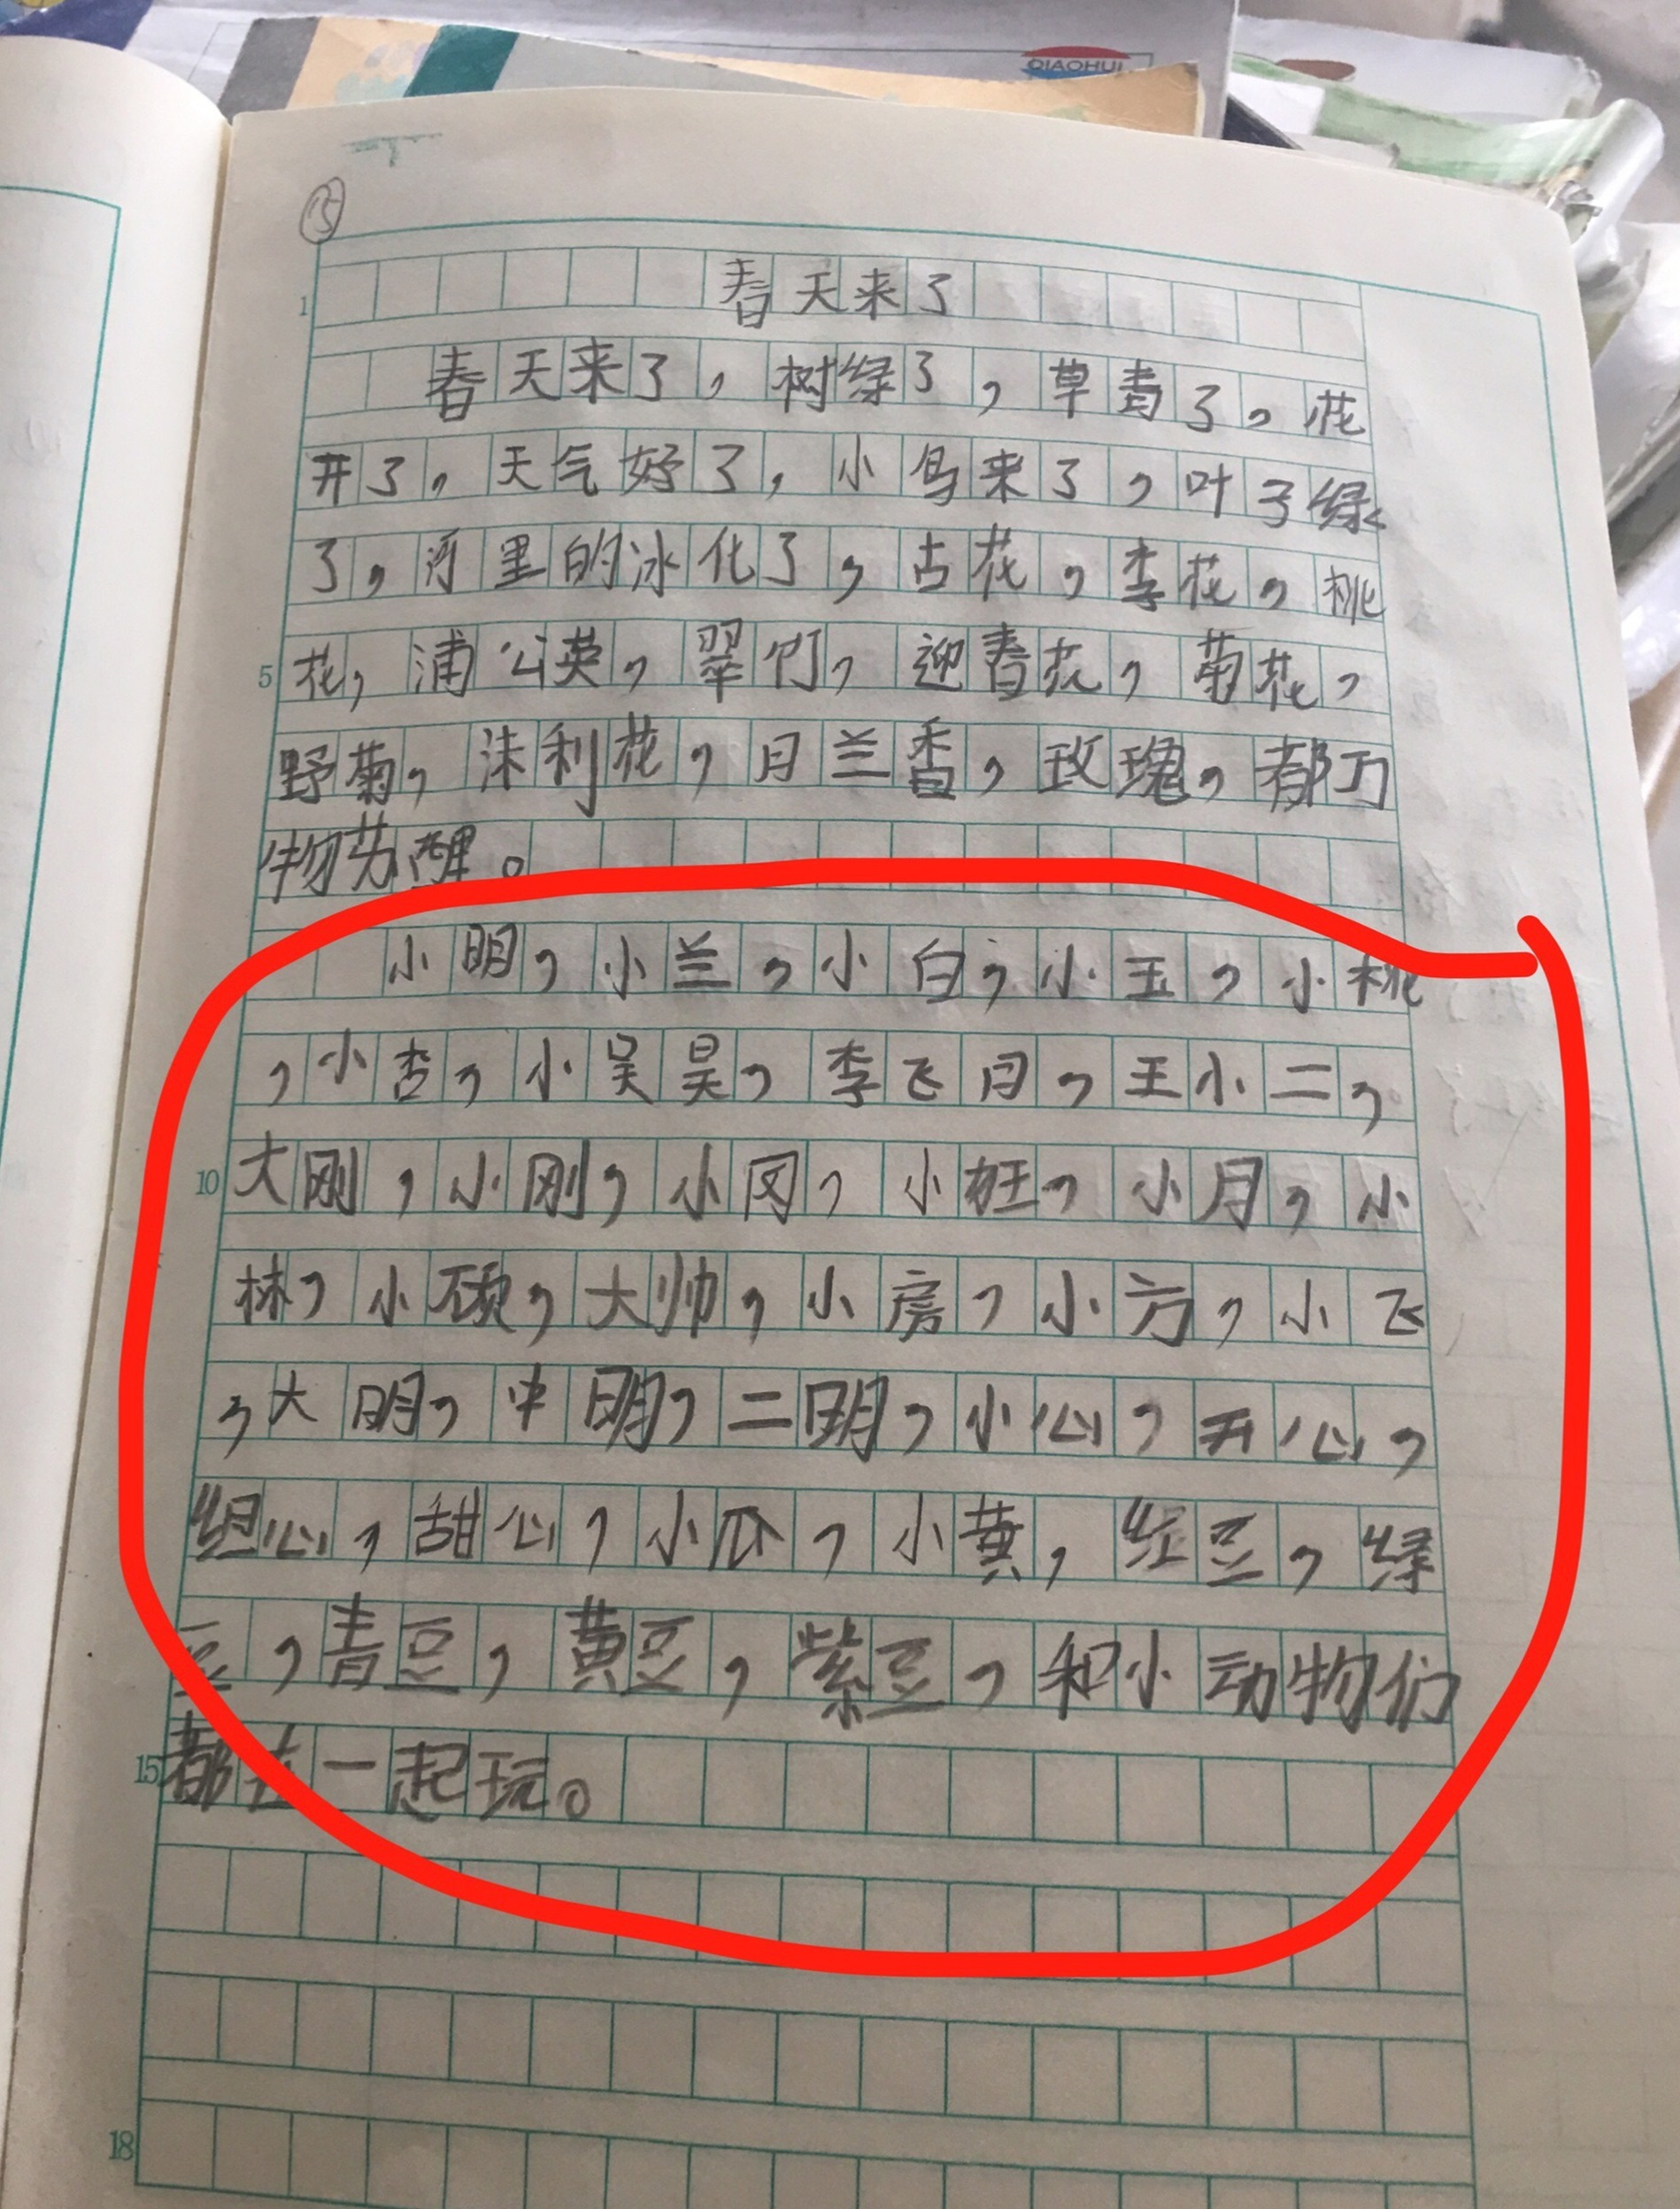 QIAOHUI
15
春天来了
1
春天来了，树绿了，草青了，花
开了，天气好了，小鸟来了，叶子绿
了，河里的冰化了，古花，李花，桃
5
花，浦公英，翠竹，迎春花，菊花，
野菊，沫利花，月兰香，玫瑰，都万
物苏醒。
小明，小兰，小白，小玉，小桃
，小杏，小吴昊，李飞月，王小二，
10
大刚，小刚，小冈，小旺，小月，小
林，小硕，大帅，小房，小方，小飞
，大明，中明，二明，小心，开心，
心，甜心，小瓜，小黄，红豆，绿
豆，青豆，黄豆，紫豆，和小动物们
15
都在一起玩。
18